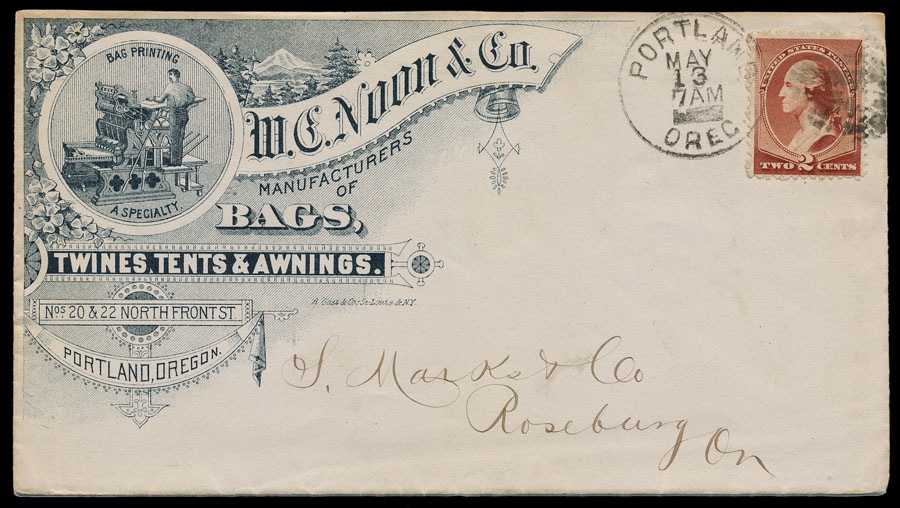 BAG PRINTING
A SPECIALTY.
W.C. Noon & Co.
MANUFACTURERS
OF
BAGS,
TWINES, TENTS & AWNINGS.
Nos 20 & 22 NORTH FRONT ST.
PORTLAND, OREGON.
A. Gast & Co. St. Louis & N.Y.
PORTLAND
MAY
13
7AM
OREG
UNITED STATES POSTAGE
TWO 2 CENTS
S. Marks & Co
Roseburg On